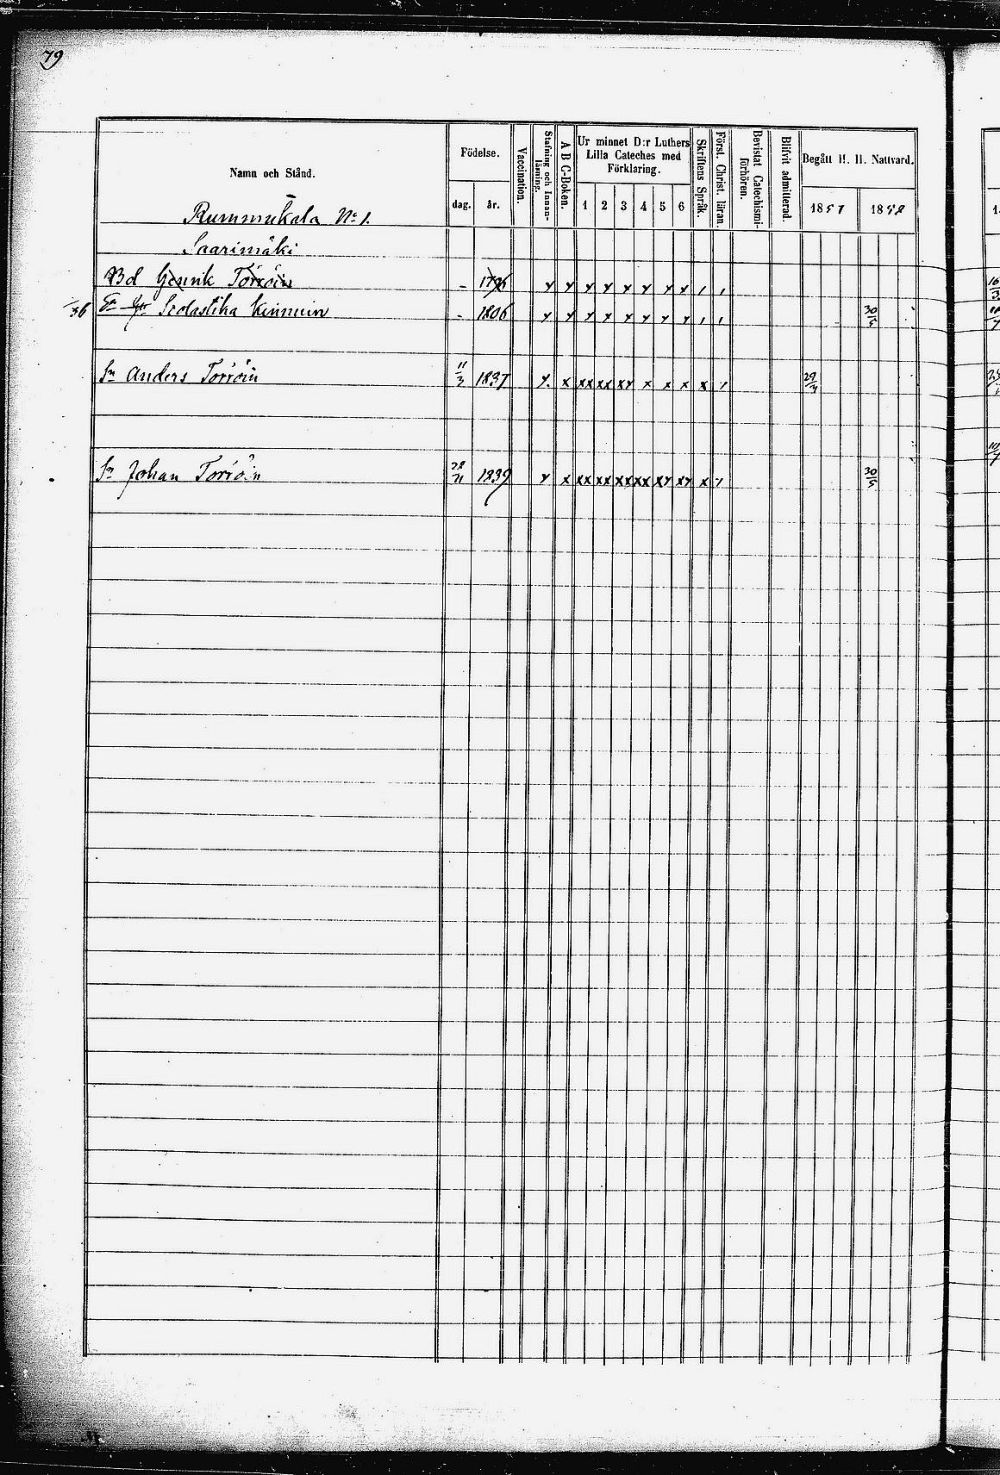 79
Namn och Stånd.
Födelse.
dag.
år.
Vaccination.
Stafning och Innan-
läsning.
A B C-Boken.
Ur minnet D:r Luthers
Lilla Cateches med
Förklaring.
1 2 3 4 5 6
Skriftens Språk.
Först. Christ. läran.
Bevistat Catechismi-
förhören.
Blifvit admitterad.
Begått H. H. Nattvard.
1857 1858
Rummukala No 1.
Saarimäki
Bd Henrik Torröin - 1796 y y y y y y y y / /
/36 Scolastika Kinnuin - 1806 y y y y y y y y / / 30/5
Sn Anders Torröin 11/3 1837 y x xx xx xy x x x x / 29/3
Sn Johan Torröin 1839 y x xx xx xx xx xy xy x y 30/5